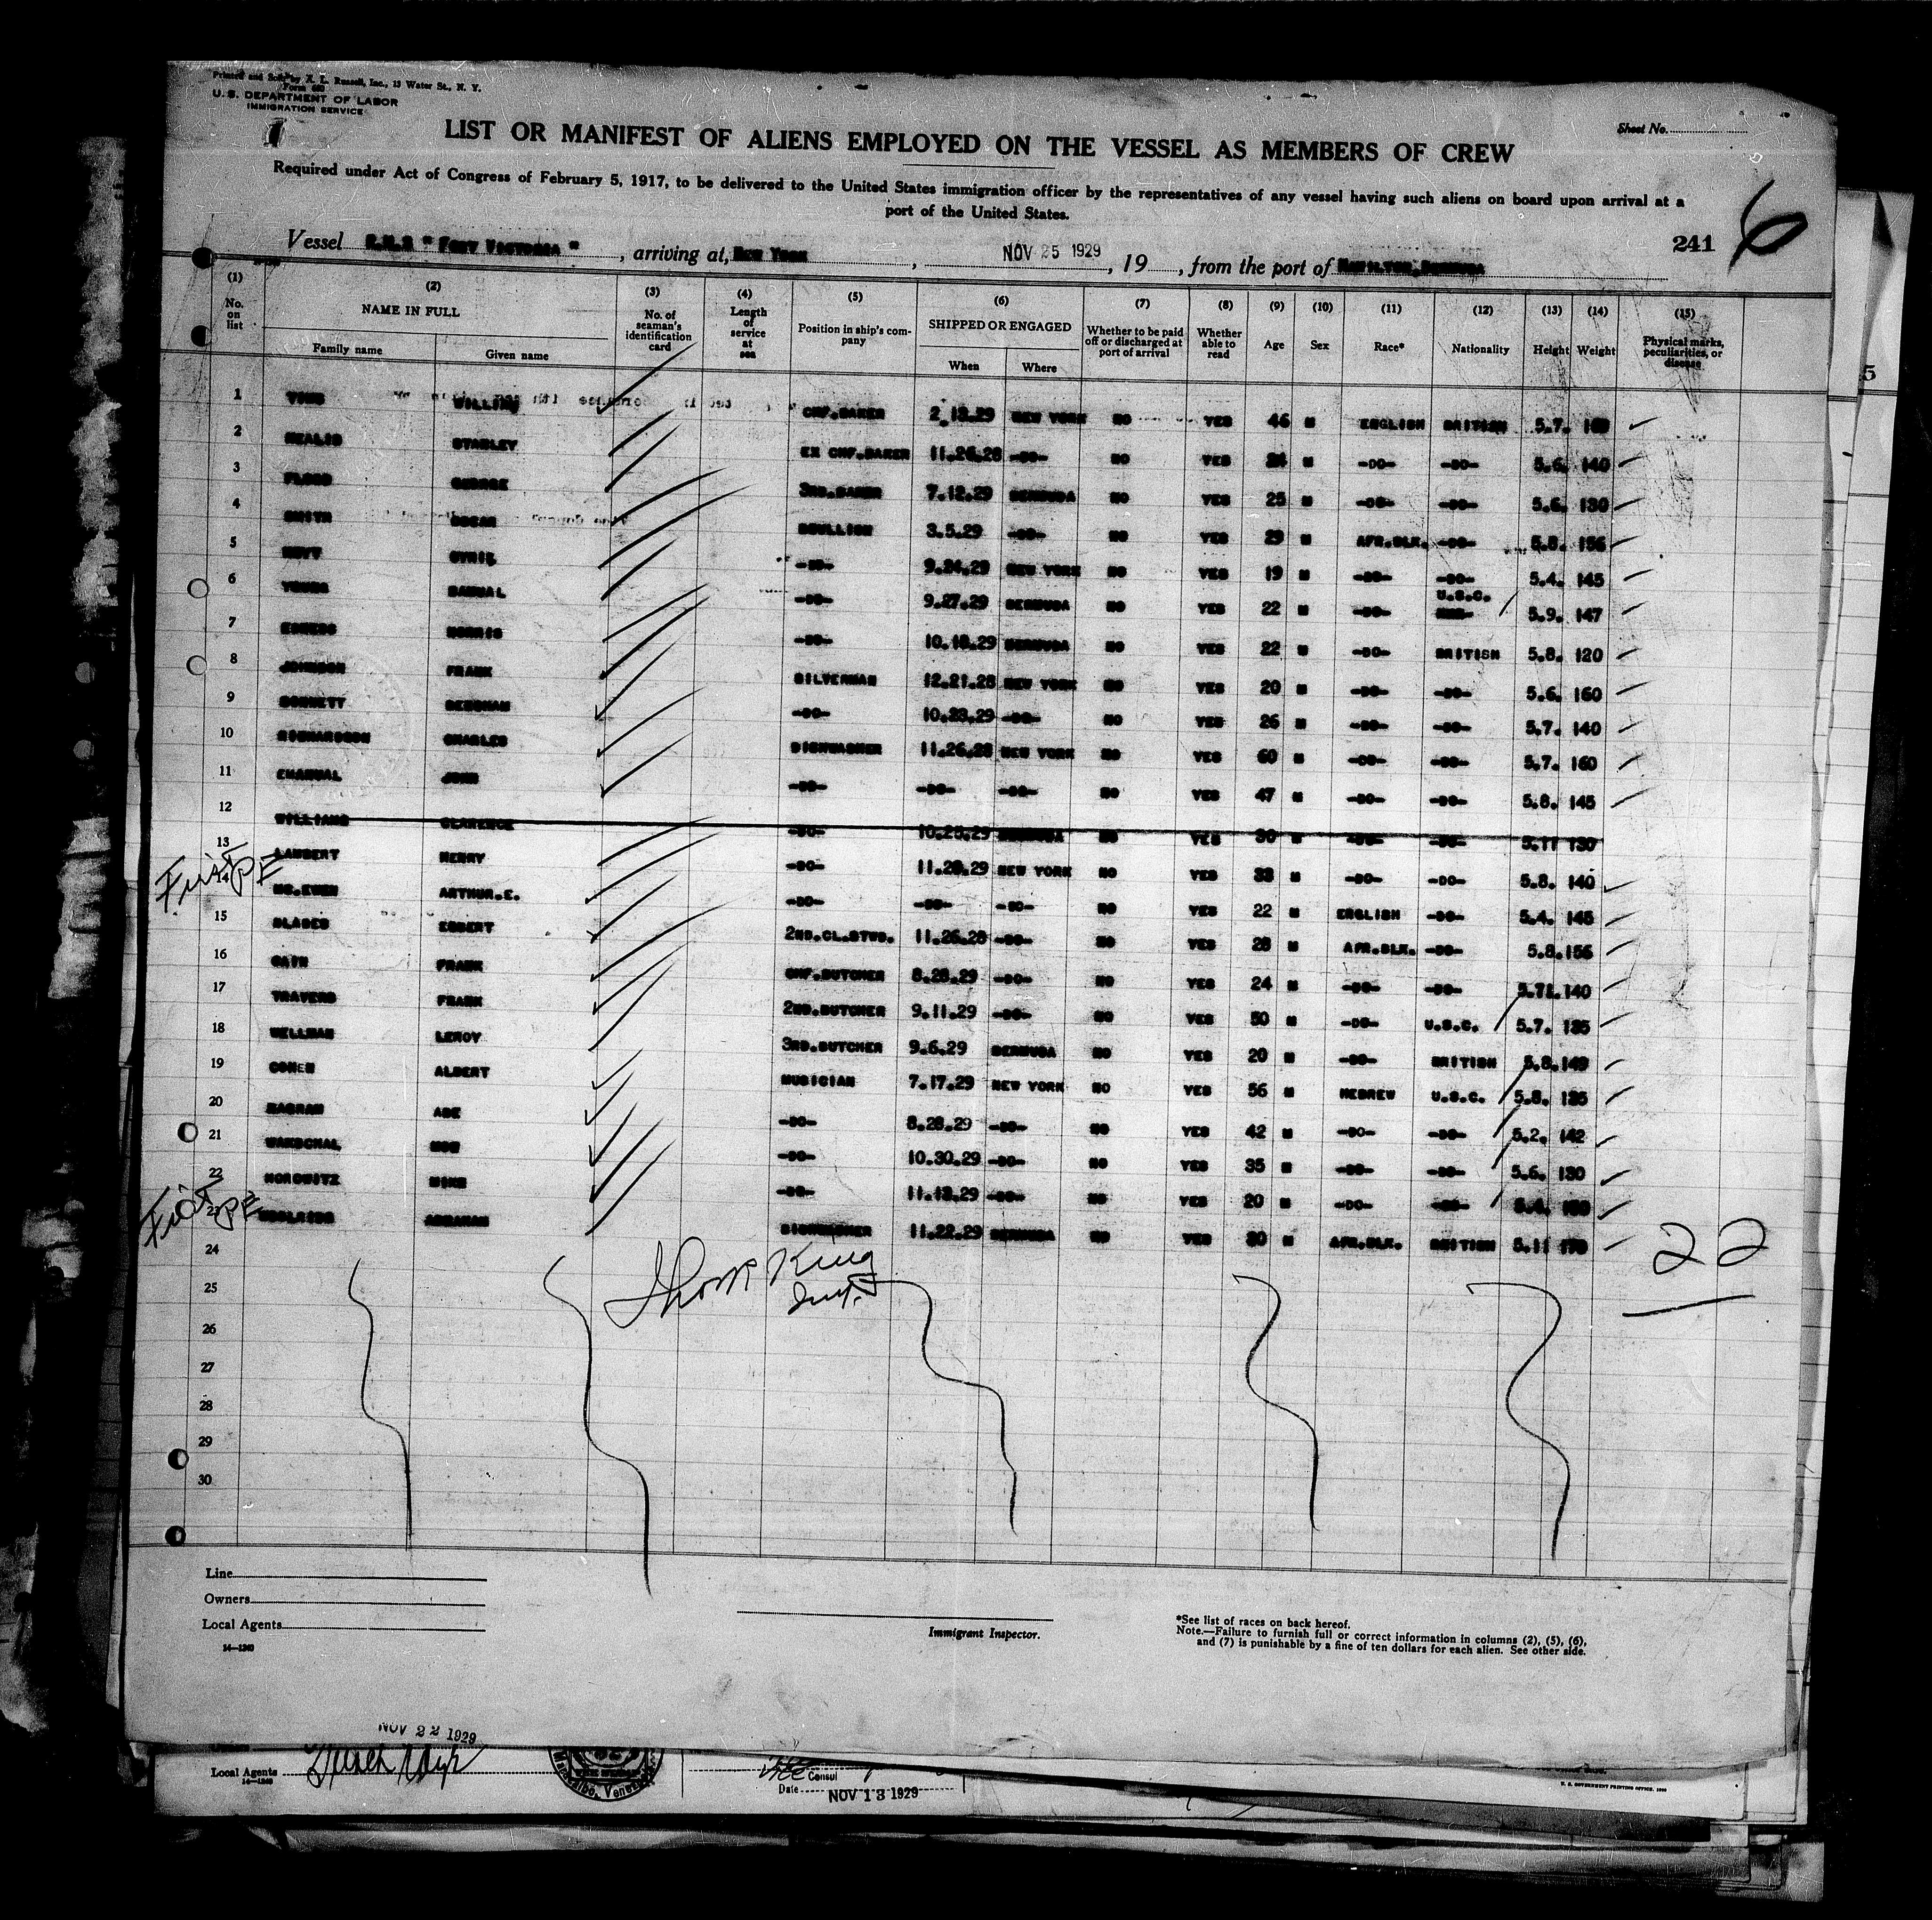 Printed and Sold by R. L. Russell, Inc., 13 Water St., N. Y.
U. S. DEPARTMENT OF LABOR
IMMIGRATION SERVICE
Sheet No.
LIST OR MANIFEST OF ALIENS EMPLOYED ON THE VESSEL AS MEMBERS OF CREW
Required under Act of Congress of February 5, 1917, to be delivered to the United States immigration officer by the representatives of any vessel having such aliens on board upon arrival at a
port of the United States.
241 6
Vessel "FORT VICTORIA", arriving at, NEW YORK, NOV 25 1929, 19, from the port of HAMILTON, BERMUDA
(1) (2) (3) (4) (5) (6) (7) (8) (9) (10) (11) (12) (13) (14) (15)
No. on list NAME IN FULL No. of seaman's identification card Length of service at sea Position in ship's company SHIPPED OR ENGAGED Whether to be paid off or discharged at port of arrival Whether able to read Age Sex Race* Nationality Height Weight Physical marks, peculiarities, or disease
Family name Given name When Where
1 CHF.BAKER 2.13.29 NEW YORK NO YES 46 M ENGLISH BRITISH 5.7.
2 STANLEY EX CHF.BAKER 11.26.28 -DO- NO YES M -DO- -DO- 5.6. 140
3 FLOOD GEORGE 3RD.BAKER 7.12.29 BERMUDA NO YES 25 M -DO- -DO- 5.6. 130
4 SMITH OSCAR 3.5.29 -DO- NO YES 29 M AFR.BLK. -DO- 5.8. 156
5 CYRIL -DO- 9.24.29 NEW YORK NO YES 19 M -DO- -DO- 5.4. 145
6 YOUNG -DO- 9.27.29 BERMUDA NO YES 22 M -DO- U.S.C. 5.9. 147
7 MORRIS -DO- 10.18.29 BERMUDA NO YES 22 M -DO- BRITISH 5.8. 120
8 JOHNSON FRANK SILVERMAN 12.21.28 NEW YORK NO YES 20 M -DO- -DO- 5.6. 160
9 -DO- 10.23.29 -DO- NO YES 26 M -DO- -DO- 5.7. 140
10 RICHARDSON CHARLES DISHWASHER 11.26.28 NEW YORK NO YES 60 M -DO- -DO- 5.7. 160
11 EMANUAL JOHN -DO- -DO- -DO- NO YES 47 M -DO- -DO- 5.8. 145
12 WILLIAMS CLARENCE -DO- 10.25.29 BERMUDA NO YES 30 M -DO- -DO- 5.11 130
13 LAMBERT HENRY -DO- 11.28.29 NEW YORK NO YES 33 M -DO- -DO- 5.8. 140
14 MC.EWEN ARTHUR.E. -DO- -DO- -DO- NO YES 22 M ENGLISH -DO- 5.4. 145
15 BLADES EGBERT 2ND.CL.STWD. 11.26.28 -DO- NO YES 28 M AFR.BLK. -DO- 5.8. 156
16 CAIN FRANK CHF.BUTCHER 8.28.29 -DO- NO YES 24 M -DO- -DO- 140
17 TRAVERS FRANK 2ND.BUTCHER 9.11.29 -DO- NO YES 50 M -DO- U.S.C. 5.7. 135
18 WELLMAN LEROY 3RD.BUTCHER 9.6.29 BERMUDA NO YES 20 M -DO- BRITISH 5.8. 149
19 COHEN ALBERT MUSICIAN 7.17.29 NEW YORK NO YES 56 M HEBREW U.S.C. 5.8. 135
20 ABE -DO- 8.28.29 -DO- NO YES 42 M -DO- -DO- 5.2. 142
21 -DO- 10.30.29 -DO- NO YES 35 M -DO- -DO- 5.6. 130
22 HOROWITZ MIKE -DO- 11.13.29 -DO- NO YES 20 M -DO- -DO-
23 ABRAHAM DISHWASHER 11.22.29 BERMUDA NO YES 30 M AFR.BLK. BRITISH 5.11 170
24
22
25
26
27
28
29
30
Line
Owners
Local Agents
14—1240
Immigrant Inspector.
*See list of races on back hereof.
Note.—Failure to furnish full or correct information in columns (2), (5), (6),
and (7) is punishable by a fine of ten dollars for each alien. See other side.
NOV 22 1929
Local Agents
14—1240
Maracaibo, Venezuela
Vice Consul
Date NOV 13 1929
U. S. GOVERNMENT PRINTING OFFICE
5